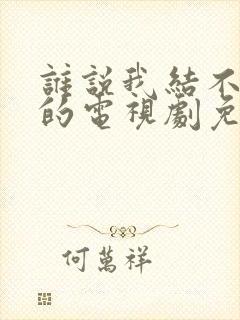 誰說我結不
的電視劇免
何萬祥